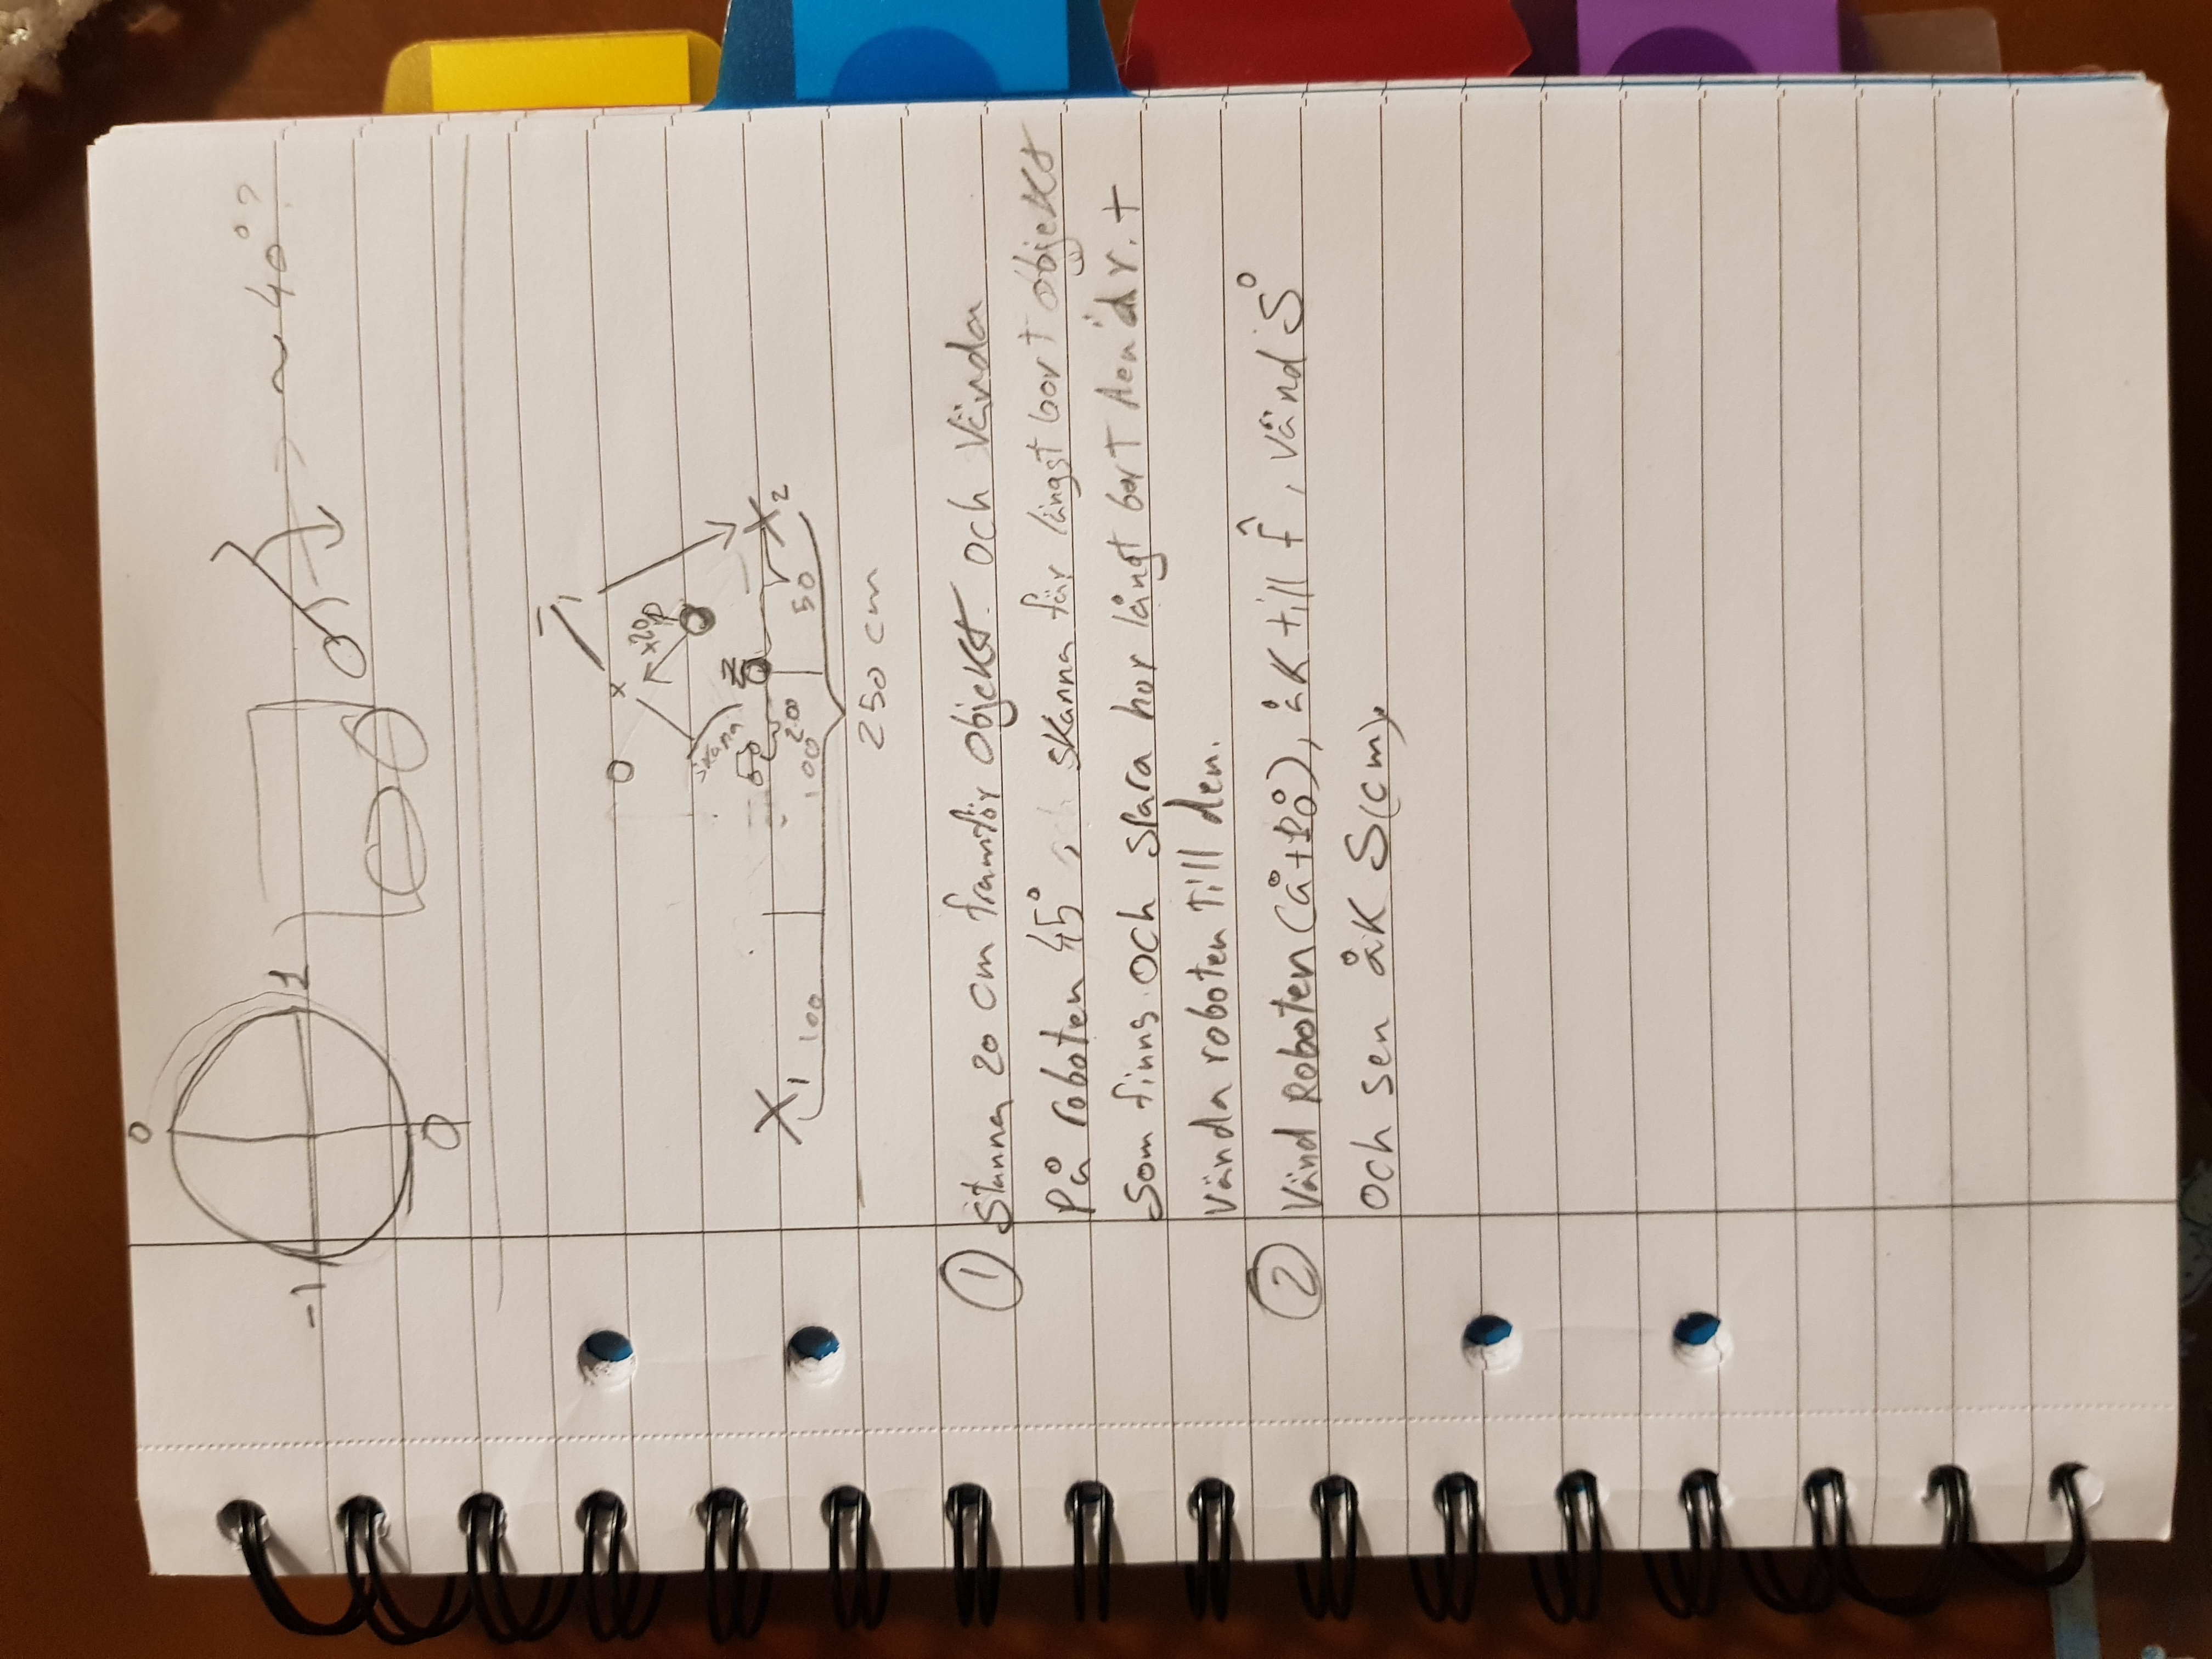 0
-1
1
~ 40°?
0
0
x
+20
P
Skana
Z
X1
X2
100
100
200
50
250 cm
① Stanna 20 cm framför objekt. och Vända
på roboten 45°, skanna för längst bort objekt
som finns och spara hur långt bort den är. +
Vända roboten till den.
② Vänd Roboten ( ), åk till f̂, vänd S°
och sen åk S(cm).